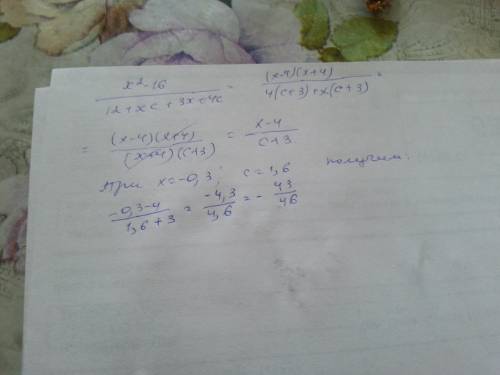 x² - 16 / 12 + xc + 3x + 4c = (x-4)(x+4) / 4(c+3)+x(c+3) =
= (x-4)(x+4) / (x+4)(c+3) = x-4 / c+3
При x=-0,3; c=1,6 получим:
-0,3-4 / 1,6+3 = -4,3 / 4,6 = - 43 / 46